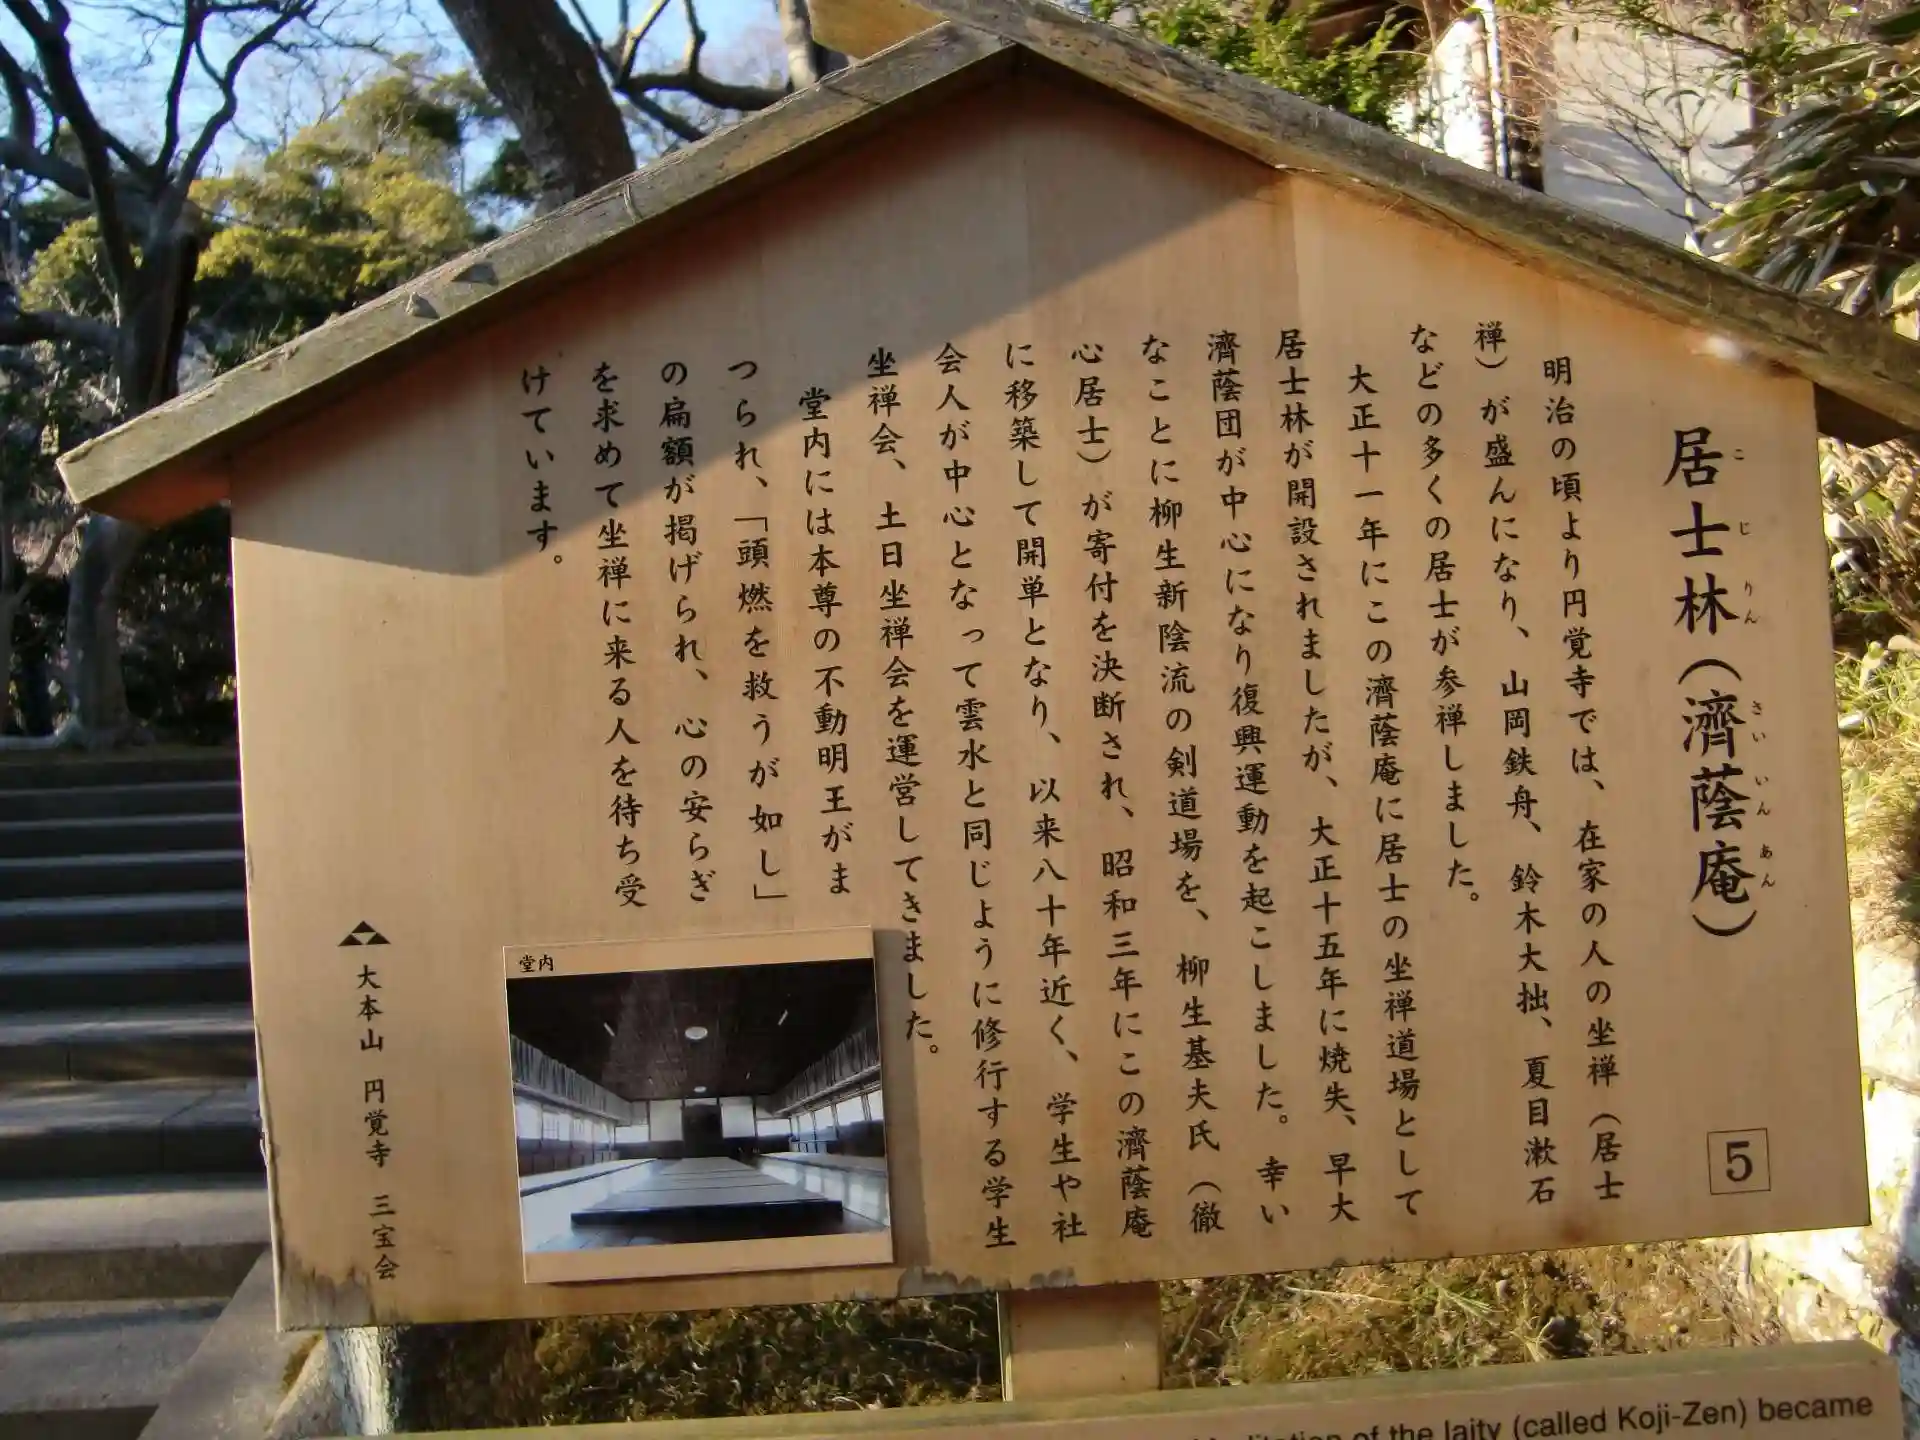 居士林（濟蔭庵）
こじりん さいいんあん
5
明治の頃より円覚寺では、在家の人の坐禅（居士
禅）が盛んになり、山岡鉄舟、鈴木大拙、夏目漱石
などの多くの居士が参禅しました。
大正十一年にこの濟蔭庵に居士の坐禅道場として
居士林が開設されましたが、大正十五年に焼失、早大
濟蔭団が中心になり復興運動を起こしました。幸い
なことに柳生新陰流の剣道場を、柳生基夫氏（徹
心居士）が寄付を決断され、昭和三年にこの濟蔭庵
に移築して開単となり、以来八十年近く、学生や社
会人が中心となって雲水と同じように修行する学生
坐禅会、土日坐禅会を運営してきました。
堂内には本尊の不動明王がま
つられ、「頭燃を救うが如し」
の扁額が掲げられ、心の安らぎ
を求めて坐禅に来る人を待ち受
けています。
堂内
大本山 円覚寺 三宝会
of the laity (called Koji-Zen) became